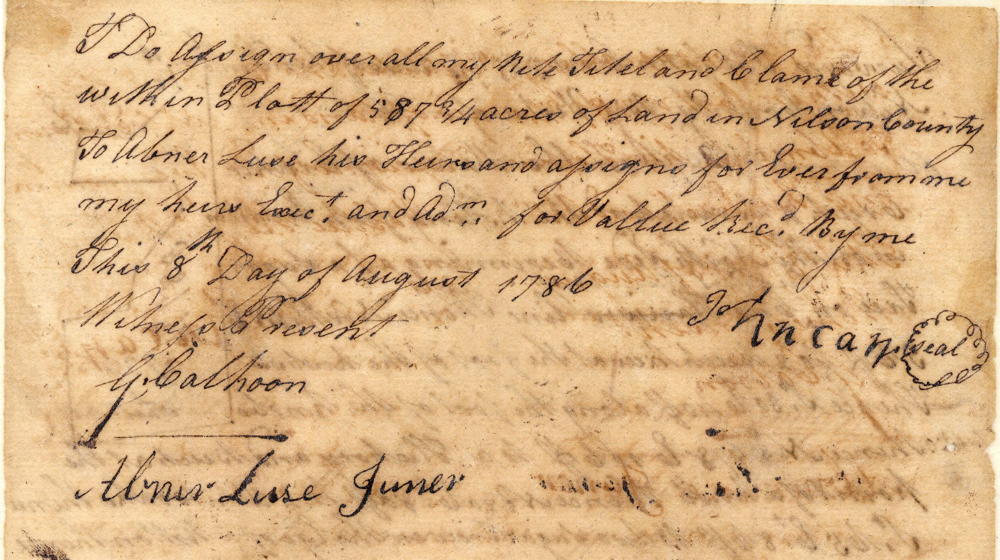 I Do Assign over all my Rite Titel and Clame of the
within Platt of 587 3/4 acres of Land in Nilson County
To Abner Luse his Heirs and assigns for Ever from me
my heirs Exec.t and Adm.n for Vallue Rec.d By me
This 8th Day of August 1786
Witness Present
John can Seal
G. Calhoon
Abner Luse Juner